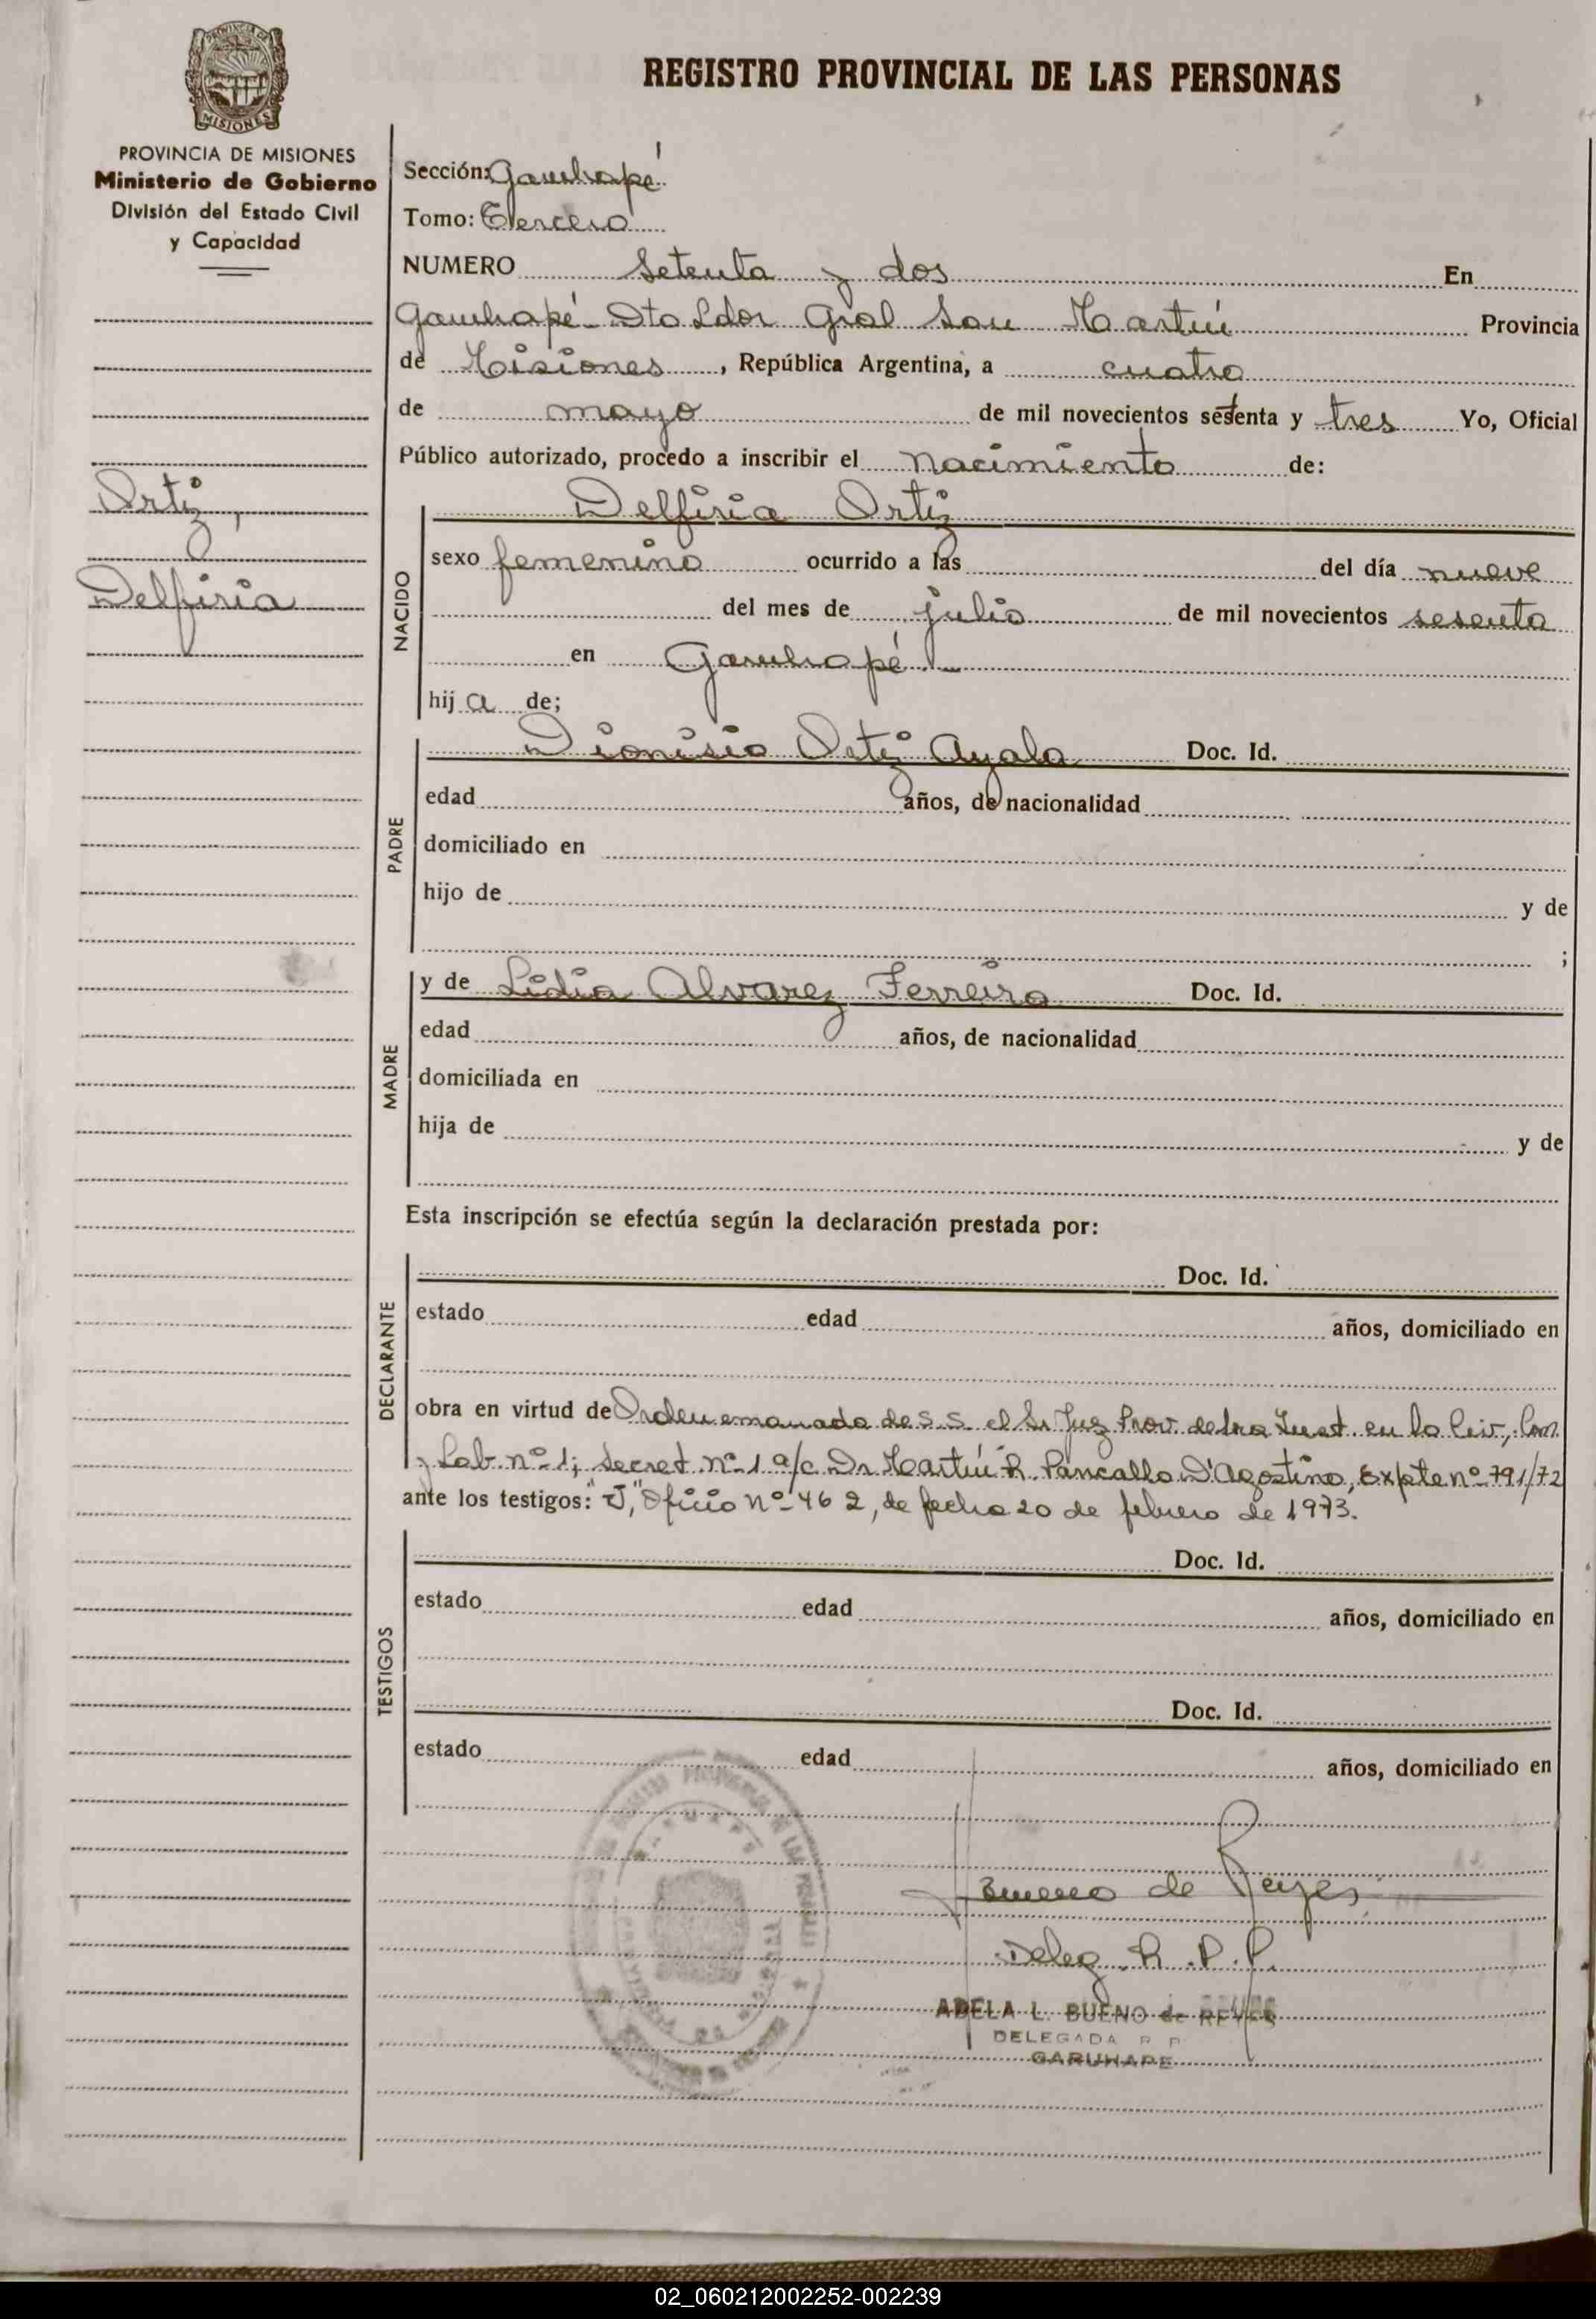 REGISTRO PROVINCIAL DE LAS PERSONAS
MISIONES
PROVINCIA DE MISIONES
Ministerio de Gobierno
División del Estado Civil
y Capacidad
Ortiz,
Delfiria
Sección: Garuhapé
Tomo: Tercero
NUMERO Setenta y dos En
Garuhapé - Dto Ldor Gral San Martín Provincia
de Misiones, República Argentina, a cuatro
de mayo de mil novecientos setenta y tres Yo, Oficial
Público autorizado, procedo a inscribir el nacimiento de:
NACIDO
Delfiria Ortiz
sexo femenino ocurrido a las del día nueve
del mes de julio de mil novecientos sesenta
en Garuhapé.-
hij a de;
PADRE
Dionisio Ortiz Ayala Doc. Id.
edad años, de nacionalidad
domiciliado en
hijo de y de
;
MADRE
y de Lidia Alvarez Ferreira Doc. Id.
edad años, de nacionalidad
domiciliada en
hija de y de
Esta inscripción se efectúa según la declaración prestada por:
DECLARANTE
Doc. Id.
estado edad años, domiciliado en
obra en virtud de Orden emanada de S.S. el Sr Juez Prov. de 1ra Inst. en lo Civ., Com.
y Lab. nº-1; Secret nº-1 a/c Dr Martín R. Pancallo D'Agostino, Expte nº 791/72
ante los testigos: "J," Oficio Nº-462, de fecha 20 de febrero de 1973.
TESTIGOS
Doc. Id.
estado edad años, domiciliado en
Doc. Id.
estado edad años, domiciliado en
Bueno de Reyes
Deleg. R.P.P.
ADELA L. BUENO de REYES
DELEGADA R P
GARUHAPE
02_060212002252-002239